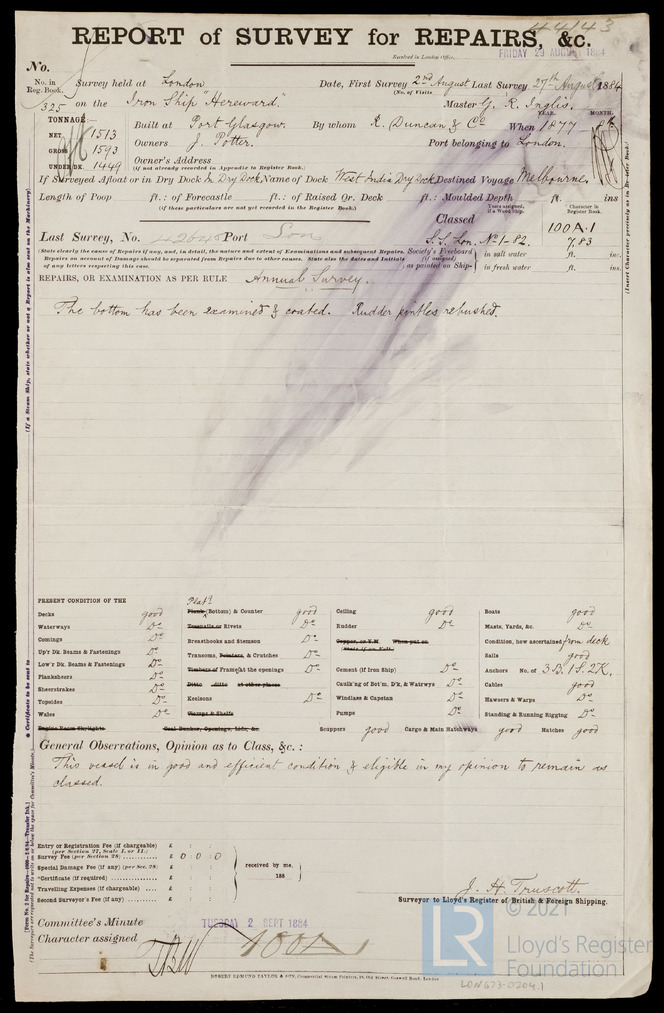 44143
REPORT of SURVEY for REPAIRS, &c.
Received in London Office, FRIDAY 29 AUGUST 1884
No.
No. in Reg. Book. Survey held at London Date, First Survey 2nd August Last Survey 27th August 1884
(No. of Visits
325 on the Iron Ship "Hereward." Master G. R. Inglis.
TONNAGE:— YEAR. MONTH.
NET 1513 Built at Port Glasgow. By whom R. Duncan & Co When 1877
GROSS 1593 Owners J. Potter. Port belonging to London.
UNDER DK. 1449 Owner's Address
(if not already recorded in Appendix to Register Book.)
If Surveyed Afloat or in Dry Dock In Dry Dock Name of Dock West India Dry Dock Destined Voyage Melbourne.
Length of Poop ft.: of Forecastle ft.: of Raised Qr. Deck ft.: Moulded Depth ft. ins
(if these particulars are not yet recorded in the Register Book.)
Character in Register Book.
Classed 100A.1
Last Survey, No. 42646 Port Lon S.S. Lon. No 1-82. 7,83
(State clearly the cause of Repairs if any, and, in detail, the nature and extent of Examinations and subsequent Repairs.
Repairs on account of Damage should be separated from Repairs due to other causes. State also the dates and Initials of any letters respecting this case.
Society's Freeboard (if assigned) as painted on Ship— in salt water ft. ins.
in fresh water ft. ins.
REPAIRS, OR EXAMINATION AS PER RULE Annual Survey.
The bottom has been examined & coated. Rudder pintles rebushed.
PRESENT CONDITION OF THE
Decks good
Waterways Do
Comings Do
Up'r Dk. Beams & Fastenings Do
Low'r Dk. Beams & Fastenings Do
Planksheers Do
Sheerstrakes Do
Topsides Do
Wales Do
Engine Room Skylights
Platg
Plank (Bottom) & Counter good
Treenails or Rivets Do
Breasthooks and Stemson Do
Transoms, Pointers, & Crutches Do
Timbers of Frame at the openings Do
Ditto ditto at other places
Keelsons Do
Clamps & Shelfs
Coal Bunker, Openings, Lids, &c.
Ceiling good
Rudder Do
Copper, or Y.M. When put on
(State if on Felt)
Cement (If Iron Ship) Do
Caulk'ng of Bot'm, D'k, & Watrwys Do
Windlass & Capstan Do
Pumps Do
Scuppers good Cargo & Main Hatchways good Hatches good
Boats good
Masts, Yards, &c. Do
Condition, how ascertained from deck
Sails good
Anchors No. of 3.B. 1.S. 2K.
Cables good
Hawsers & Warps Do
Standing & Running Rigging Do
General Observations, Opinion as to Class, &c.:
This vessel is in good and efficient condition & eligible in my opinion to remain as
classed.
Entry or Registration Fee (if chargeable) £ : :
(per Section 27, Scale I. or II.)
Survey Fee (per Section 28) £ 0 : 0 : 0
Special Damage Fee (if any) (per Sec. 28) £ : : received by me,
*Certificate (if required) £ : : 188
Travelling Expenses (if chargeable) £ : :
Second Surveyor's Fee (if any) £ : :
J. H. Truscott.
Surveyor to Lloyd's Register of British & Foreign Shipping.
Committee's Minute TUESDAY 2 SEPT 1884
Character assigned 100A1
ROBERT EDMUND TAYLOR & SON, Commercial Steam Printers, 19, Old Street, Goswell Road, London
LR © 2021
Lloyd's Register
Foundation
LON673-0204.1
(If a Steam Ship, state whether or not a Report is also sent on the Machinery)
* Certificate to be sent to
(Insert Character precisely as in Register Book)